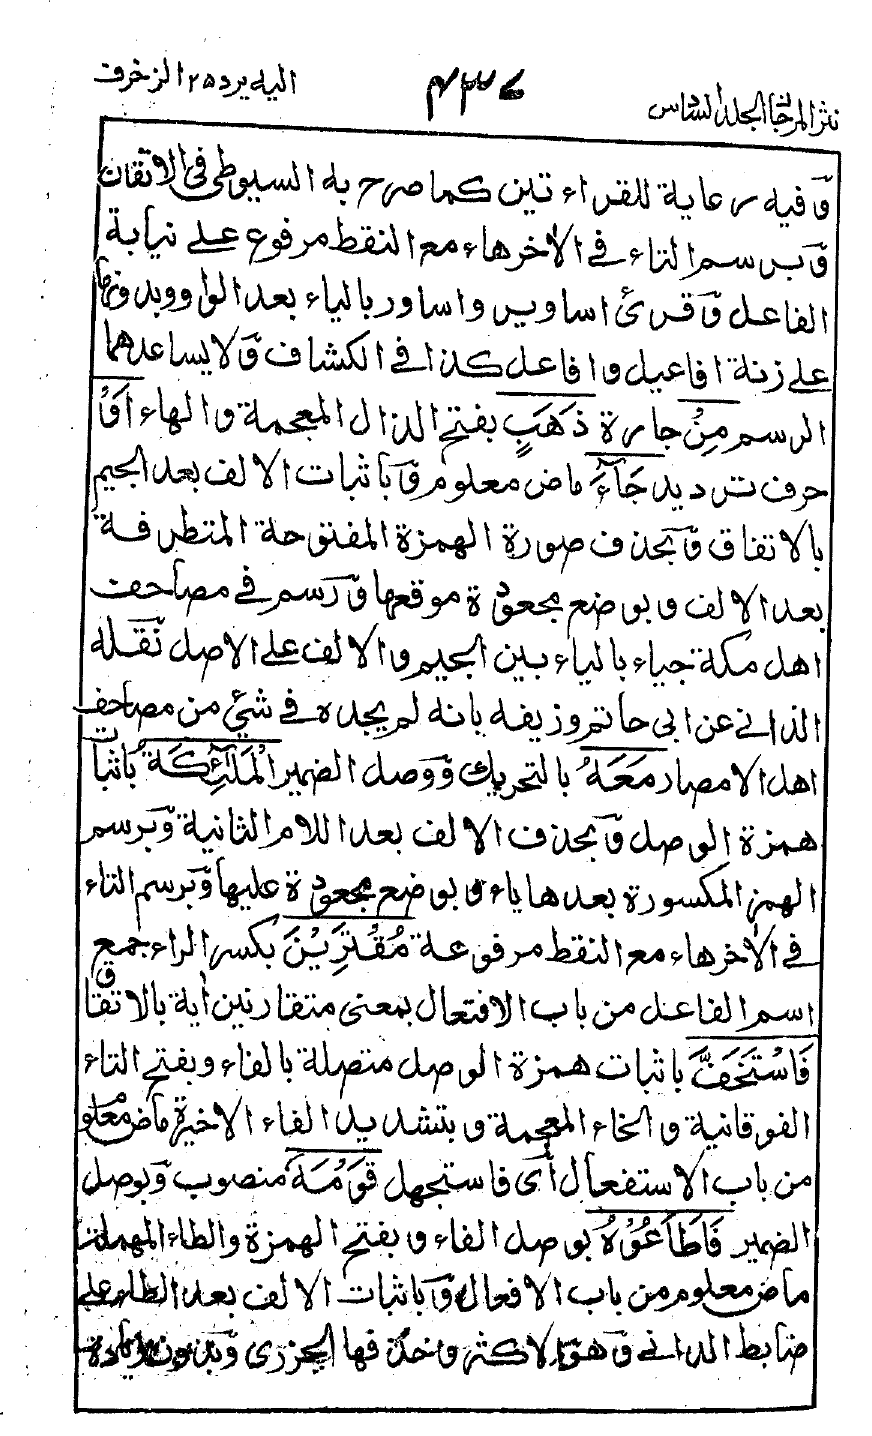 نثر المرجان المجلد السادس ٤٣٧ اليه يرد ٢٥ الزخرف
وَفيه رعاية للقراءتين كما صرح به السيوطى فى الاتقان
وَبرسم التاء فى الاٰخر هاء مع النقط مرفوع على نيابة
الفاعل وَقرئ اساوير واساور بالياء بعد الواو وبدونها
على زنة افاعيل وافاعل كذا فى الكشاف وَلا يساعدهما
الرسم مِنْ جارة ذَهَبٍ بفتح الذال المعجمة والهاء اَوْ
حرف ترديد جَآءَ ماض معلوم وَباثبات الالف بعد الجيم
بالاتفاق وَبحذف صورة الهمزة المفتوحة المتطرفة
بعد الالف وبوضع مجعودة موقعها وَرسم فى مصاحف
اهل مكة جياء بالياء بين الجيم والالف على الاصل نقله
الدانى عن ابى حاتم وزيفه بانه لم يجده فى شئ من مصاحف
اهل الامصار مَعَهُ بالتحريك وَوصل الضمير الْمَلٰٓئِكَةُ باثبات
همزة الوصل وَبحذف الالف بعد اللام الثانية وَبرسم
الهمزة المكسورة بعدها ياء وبوضع مجعودة عليها وَبرسم التاء
فى الاٰخر هاء مع النقط مرفوعة مُقْتَرِنِيْنَ بكسر الراء جمع
اسم الفاعل من باب الافتعال بمعنى متقارنين اٰية بالاتفاق
فَاسْتَخَفَّ باثبات همزة الوصل متصلة بالفاء وبفتح التاء
الفوقانية والخاء المعجمة وبتشديد الفاء الاخيرة ماض معلوم
من باب الاستفعال اى فاستجهل قَوْمَهٗ منصوب وَبوصل
الضمير فَاَطَاعُوْهُ بوصل الفاء وبفتح الهمزة والطاء المهملة
ماض معلوم من باب الافعال وَباثبات الالف بعد الطاء على
ضابط الدانى وَهو الاكثر وحذفها الجزرى وَبدون زيادة